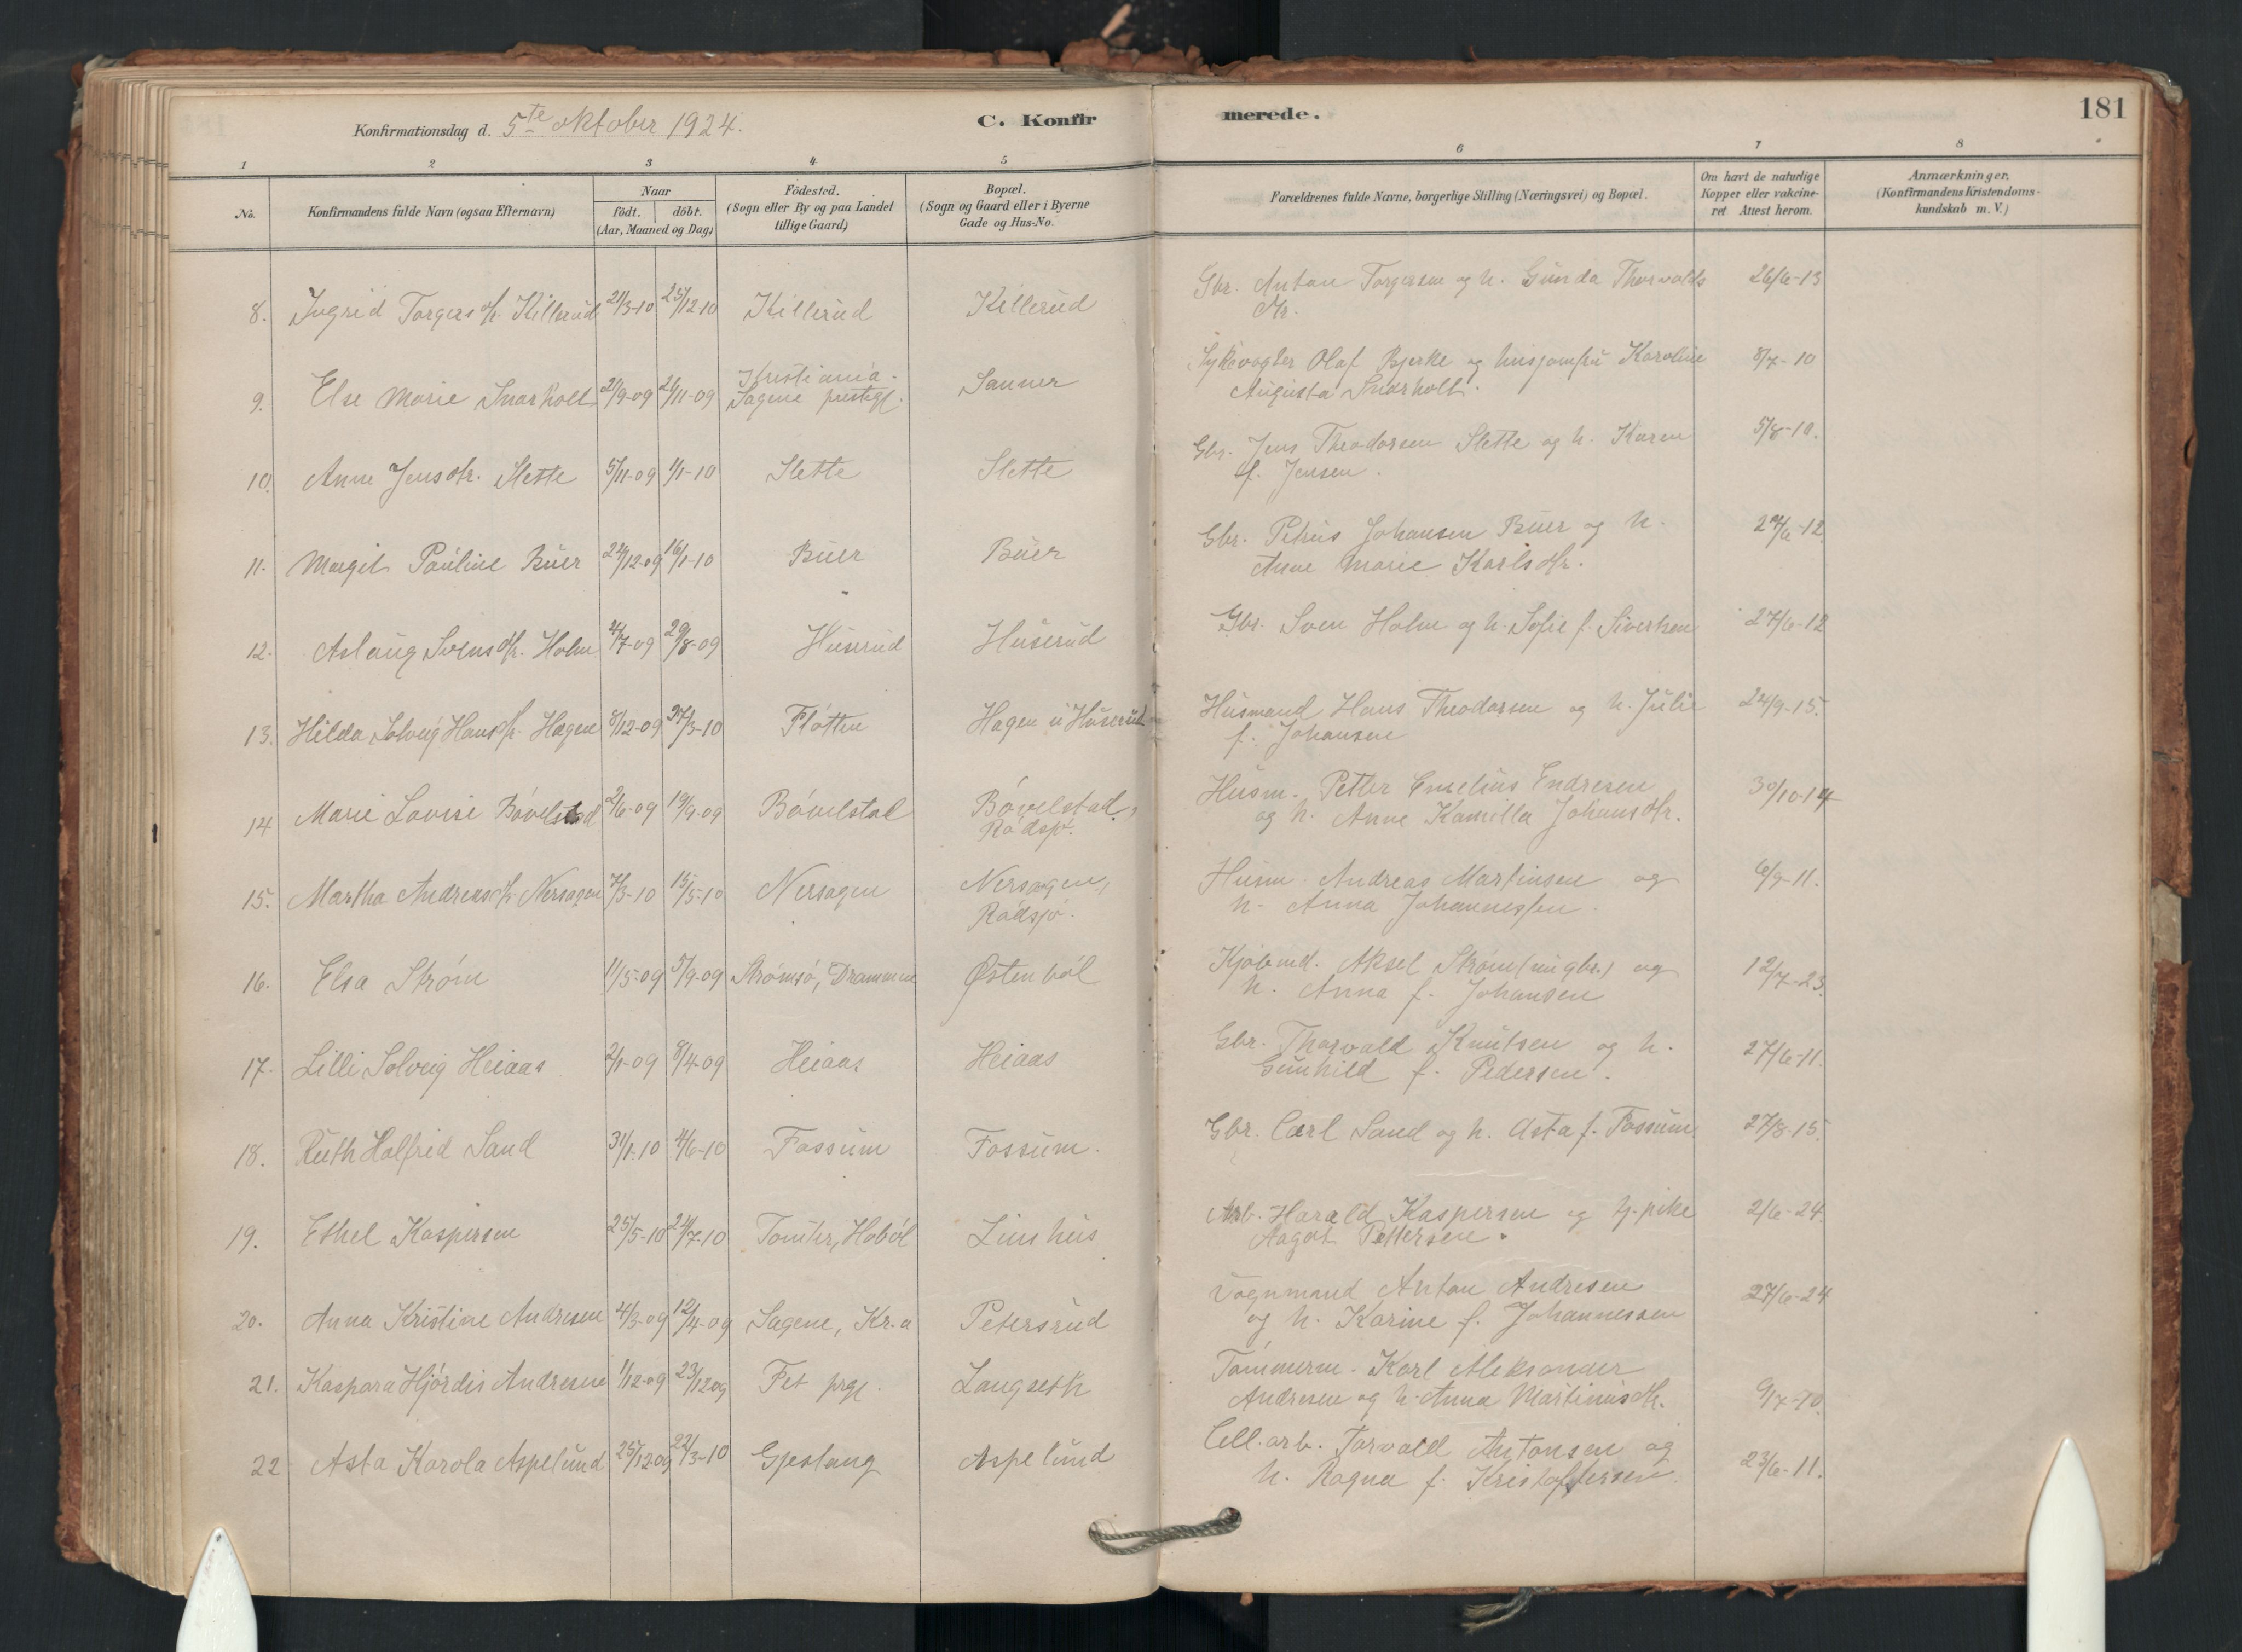 Konfirmationsdag d. 5te oktober 1924.
C. Konfirmerede.
181
1 2 3 4 5 6 7 8
No.
Konfirmandens fulde Navn (ogsaa Efternavn)
Naar
födt. döbt.
(Aar, Maaned og Dag)
Födested.
(Sogn eller By og paa Landet
tillige Gaard)
Bopæl.
(Sogn og Gaard eller i Byerne
Gade og Hus-No.
Forældrenes fulde Navne, borgerlige Stilling (Næringsvei) og Bopæl.
Om havt de naturlige
Kopper eller vakcine-
ret Attest herom.
Anmærkninger.
(Konfirmandens Kristendoms-
kundskab m. V.)
8. Ingrid Torgersdtr. Killerud 21/3-10 25/12-10 Killerud Killerud Gbr. Anton Torgersen og h. Gunda Thorvalds 26/6-13
dtr.
9. Else Marie Snarholt 21/9-09 21/11-09 Kristiania. Sanner Sykevogter Olaf Bjerke og husjomfru Karoline 8/7-10
Sagene prestegj. Augusta Snarholt.
10. Anne Jensdtr. Slette 5/11-09 1/1-10 Slette Slette Gbr. Jens Theodorsen Slette og h. Karen 5/8-10.
f. Jensen.
11. Margit Pauline Buer 22/12-09 16/1-10 Buer Buer Gbr. Petrus Johansen Buer og h. 29/6-12
Anne Marie Karlsdtr.
12. Aslaug Svensdtr. Holm 4/7-09 29/8-09 Huserud Huserud Gbr. Sven Holm og h. Sofie f. Sivertsen 27/6-12
13. Hilda Solveig Hansdtr. Hagen 8/12-09 27/3-10 Fløtten Hagen u Huserud Husmand Hans Theodorsen og h. Julie 24/9-15.
f. Johansen
14 Marie Lovise Bövelstad 2/6-09 19/9-09 Bövelstad Bövelstad, Husm. Petter Emelius Endresen 30/10-14
Rödsjö. og h. Anne Kamilla Johansdtr.
15. Martha Andreasdtr. Nersagen 7/3-10 15/5-10 Nersagen Nersagen, Husm. Andreas Martinsen og 6/9-11.
Rödsjö. h. Anna Johannessen.
16. Elsa Ström 11/5-09 5/9-09 Strömsö, Drammen Østenböl Kjöbmd. Aksel Ström (nu gbr.) og 12/7-23.
h. Anna f. Johansen
17. Lilli Solveig Heiaas 2/1-09 8/4-09 Heiaas Heiaas Gbr. Thorvald Knutsen og h. 27/6-11.
Gunhild f. Pedersen.
18. Ruth Halfrid Sand 31/1-10 4/6-10 Fossum Fossum. Gbr. Carl Sand og h. Asta f. Fossum. 27/8-15.
19. Ethel Kaspersen 25/5-10 24/7-10 Tomter, Haböl Linshus Arb. Harald Kaspersen og tj. pike 2/6-24.
Aagot Pettersen.
20. Anna Kristine Andresen 4/3-09 12/4-09 Sagene, Kr.a Petersrud Vognmand Anton Andresen 27/6-24
og h. Karine f. Johannessen
21. Kaspara Hjördis Andresen 1/12-09 23/12 09 Fet prgj. Langseth Tömmerm. Karl Aleksander
Andresen og h. Anna Martinusdtr. 9/7-10
22 Asta Karola Aspelund 25/12 09 22/3-10 Gjestang Aspelund Cell.arb. Torvald Antonsen og 23/6-11.
h. Ragna f. Kristoffersen.